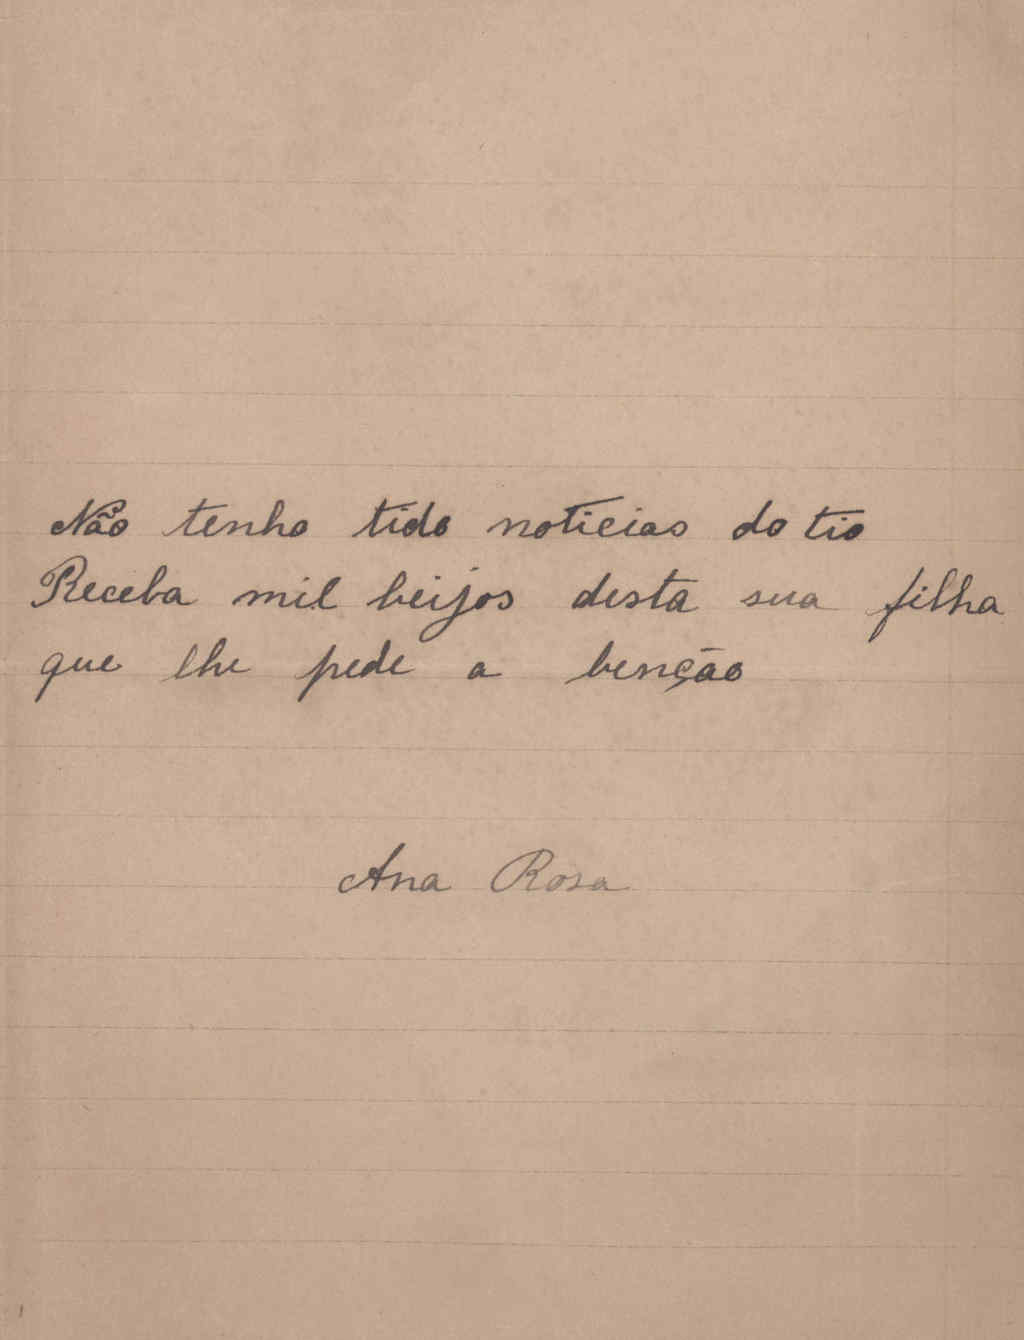 Não tenho tido noticias do tio
Receba mil beijos desta sua filha
que lhe pede a benção
Ana Rosa